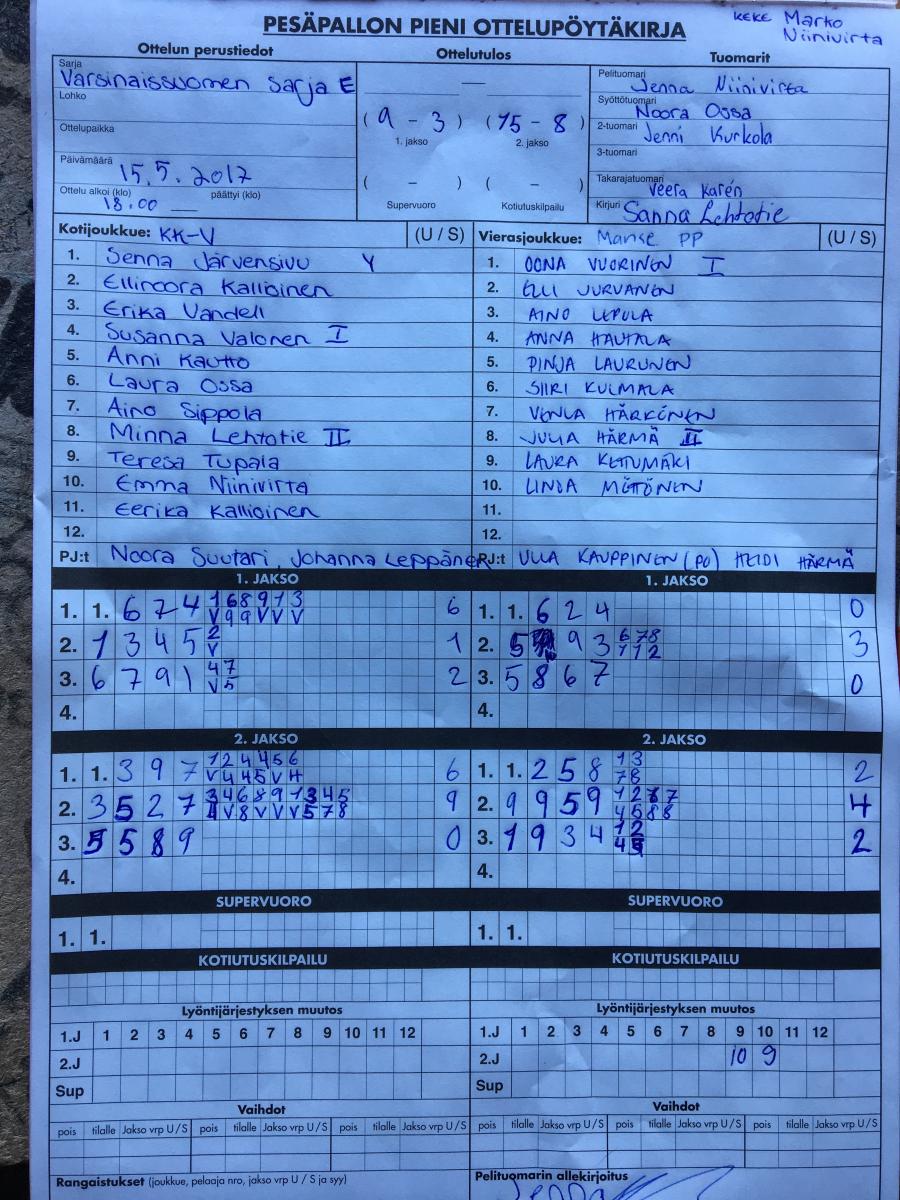 PESÄPALLON PIENI OTTELUPÖYTÄKIRJA
KEKE Marko
Niinivirta
Ottelun perustiedot Ottelutulos Tuomarit
Sarja
Varsinaissuomen sarja E
Lohko
Ottelupaikka
Päivämäärä
15.5.2017
Ottelu alkoi (klo) päättyi (klo)
18.00
(9 - 3) (15 - 8)
1. jakso 2. jakso
( - ) ( - )
Supervuoro Kotiutuskilpailu
Pelituomari
Jenna Niinivirta
Syöttötuomari
Noora Ossa
2-tuomari
Jenni Kurkola
3-tuomari
Takarajatuomari
Veera Karén
Kirjuri
Sanna Lehtotie
Kotijoukkue: KK-V (U / S)
1. Senna Järvensivu Y
2. Ellinoora Kallioinen
3. Erika Vandell
4. Susanna Valonen I
5. Anni Kautto
6. Laura Ossa
7. Aino Sippola
8. Minna Lehtotie II
9. Teresa Tupala
10. Emma Niinivirta
11. Eerika Kallioinen
12.
PJ:t Noora Suutari, Johanna Leppänen
Vierasjoukkue: Manse PP (U / S)
1. OONA VUORINEN I
2. ELLI JURVANEN
3. AINO LEPOLA
4. ANNA HAUTALA
5. PINJA LAURUNEN
6. SIIRI KULMALA
7. VENLA HÄRKÖNEN
8. JULIA HÄRMÄ II
9. LAURA KETUMÄKI
10. LINDA MÖTÖNEN
11.
12.
PJ:t ULLA KAUPPINEN (PO) HEIDI HÄRMÄ
1. JAKSO
1. 1. 6 7 4 1 6 8 9 1 3 6
V 9 9 V V V
2. 1 3 4 5 2 1
V
3. 6 7 9 1 4 7 2
V 5
4.
1. JAKSO
1. 1. 6 2 4 0
2. 5 9 3 6 7 8 3
1 1 2
3. 5 8 6 7 0
4.
2. JAKSO
1. 1. 3 9 7 1 2 4 4 5 6 6
V 4 4 5 V H
2. 3 5 2 7 3 4 6 8 9 1 3 4 5 9
V 8 V V V 5 7 8
3. 5 5 8 9 0
4.
2. JAKSO
1. 1. 2 5 8 1 3 2
7 8
2. 9 9 5 9 1 2 7 4
4 5 8 8
3. 1 9 3 4 1 2 2
4 5
4.
SUPERVUORO
1. 1.
SUPERVUORO
1. 1.
KOTIUTUSKILPAILU
KOTIUTUSKILPAILU
Lyöntijärjestyksen muutos
1.J 1 2 3 4 5 6 7 8 9 10 11 12
2.J
Sup
Lyöntijärjestyksen muutos
1.J 1 2 3 4 5 6 7 8 9 10 11 12
2.J 10 9
Sup
Vaihdot
pois tilalle Jakso vrp U/S pois tilalle Jakso vrp U/S pois tilalle Jakso vrp U/S
Vaihdot
pois tilalle Jakso vrp U/S pois tilalle Jakso vrp U/S pois tilalle Jakso vrp U/S
Rangaistukset (joukkue, pelaaja nro, jakso vrp U / S ja syy)
Pelituomarin allekirjoitus